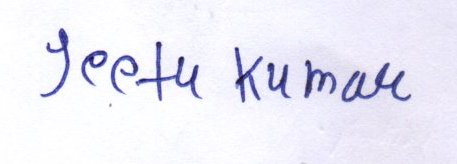 Jeetu Kumar